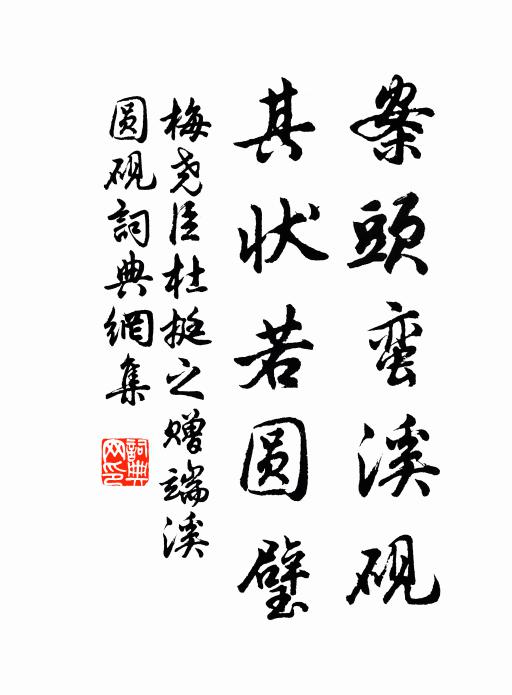 案頭蛮溪砚
其状若圆璧
梅尧臣杜挺之赠端溪
圆砚詞典網集
詞典网印